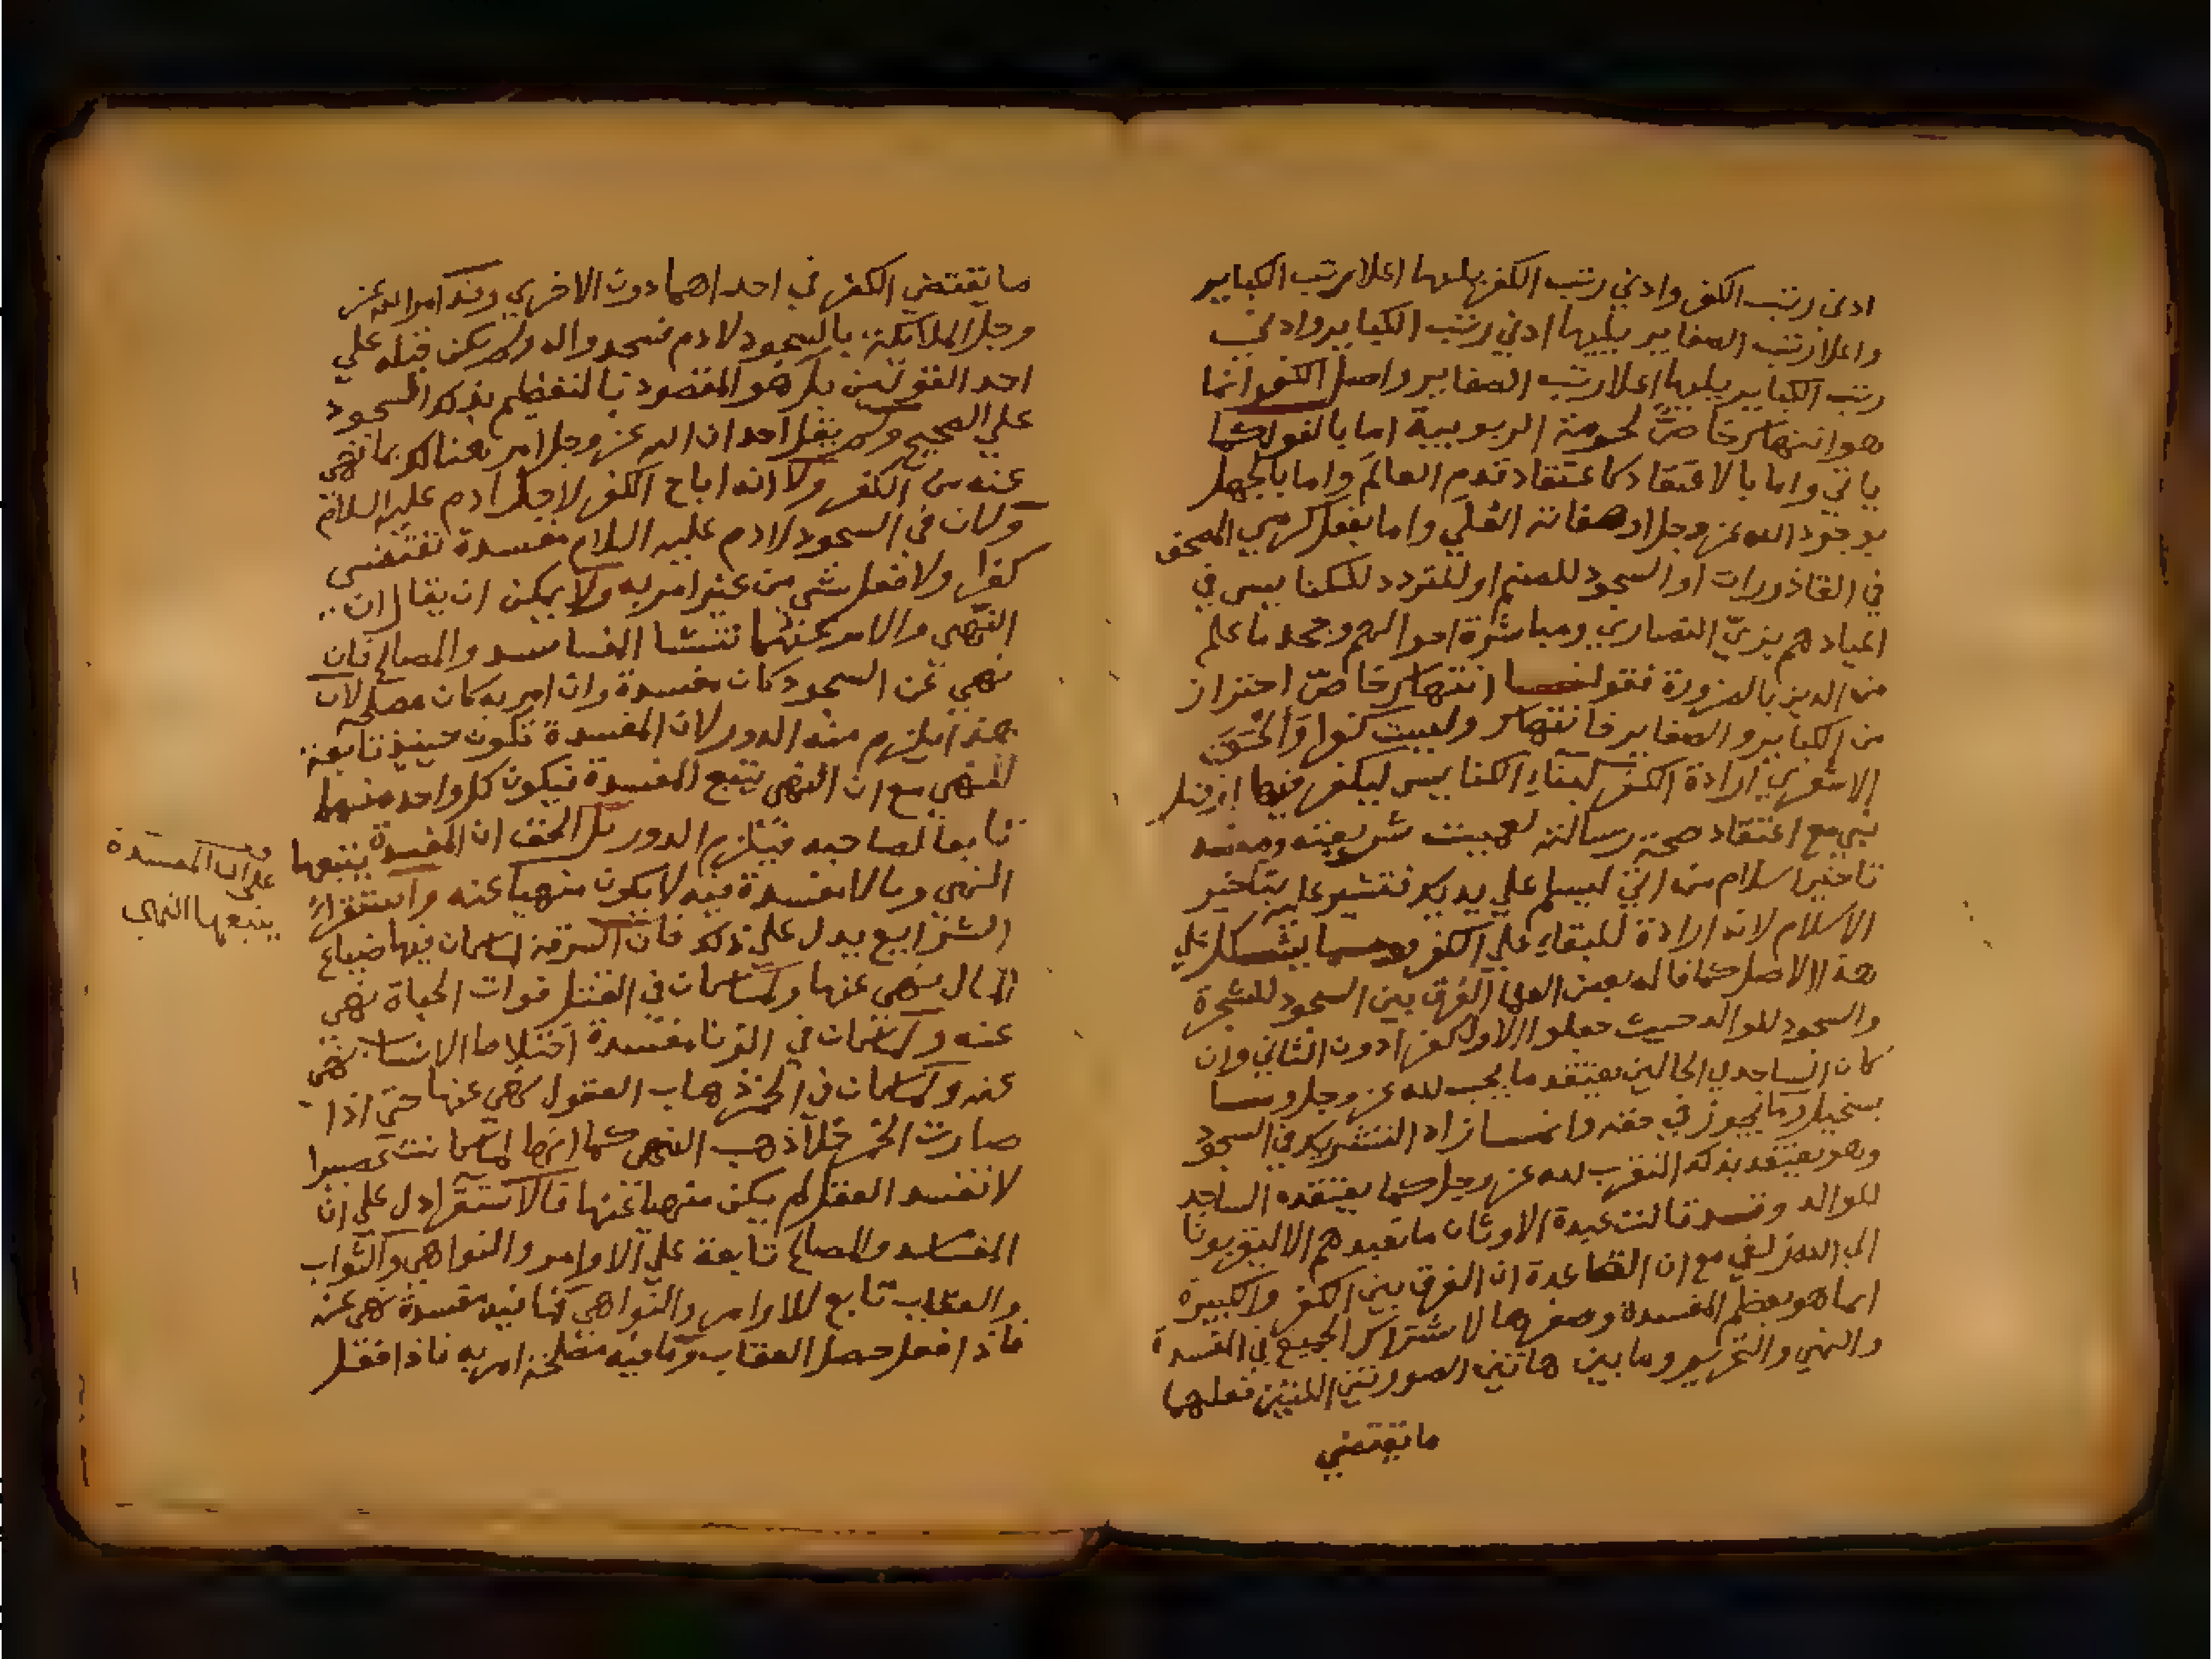 ادنى رتب الكفر وادني رتب الكفر يليها اعلا رتب الكباير
واعلا رتب الصغاير يليها ادني رتب الكباير وادني
رتب الكباير يليها اعلا رتب الصغاير واصل الكفر انما
هو انتهاك خاص لحرمة الربوبية اما بالقول كما
ياتي واما بالاعتقاد كاعتقاد قدم العالم واما بالجهل
بوجود الله عز وجل او صفاته العلي واما بفعل كرمي المصحف
في القاذورات او السجود للصنم او للتردد للكنايس في
اعيادهم بزيّ النصاري ومباشرة احوالهم وجحد ما علم
من الدين بالضرورة فقولنا انتهاك خاص احتراز
من الكباير والصغاير فانتهاك وليست كفرا والحق
الاشعري ارادة الكفر كبناء الكنايس ليكفر فيها او قتل
نبي مع اعتقاد صحة رسالته لهميت شريعته ومنه
تاخير اسلام من اتي ليسلم علي يديك فتشير عليه بتاخير
الاسلام لانه ارادة للبقاء علي الكفر ومما يشكل علي
هذا الاصل كما قاله بعض العلما الفرق بين السجود للشجرة
والسجود للوالد حيث جعلوا الاول كفرا دون الثاني وان
كان الساجد في الحالين يعتقد ما يجب لله عز وجل وما
يستحيل وما يجوز في حقه وانما اراد التشريك في السجود
وهو يعتقد بذلك التقرب لله عز وجل كما يعتقده الساجد
للوالد وقد قالت عبدة الاوثان ما نعبدهم الا ليقربونا
الي الله زلفي مع ان القاعدة ان الفرق بين الكفر والكبيرة
انما هو بعظم المفسدة وصغرها لا شتراك الجميع في المفسدة
والنهي والتحريم وما بين هاتين الصورتين اللتين فعلهما
ما يقتضي
ما يقتضي الكفر في احداهما دون الاخري وقد امر الله عز
وجل الملايكة بالسجود لادم فسجدوا له ولم يكن قبله علي
احد القولين بل هو المقصود بالتعظيم بذلك السجود
علي الصحيح ولم يقل احد ان الله عز وجل امر هنالك بما نهي
عنه من الكفر ولا انه اباح الكفر لاجل ادم عليه السلام
ولا ان في السجود لادم عليه السلام مفسدة تقتضي
كفرا ولا فعل شي من غير امر به ولا يمكن ان يقال ان
النهي والامر عنهما تنشا المفاسد والمصالح فان
نهي عن السجود كان مفسدة وان امر به كان مصلحة لان
هذا يلزم منه الدور لان المفسدة تكون حينيذ تابعة
للنهي مع ان النهي يتبع المفسدة فيكون كل واحد منهما
تابعا لصاحبه فيلزم الدور بل الحق ان المفسدة يتبعها
النهي وما لا مفسدة فيه لا يكون منهيا عنه واستقراء
الشرايع يدل علي ذلك فان السرقة لما كان فيها ضياع
المال نهي عنها ولما كان في القتل فوات الحياة نهي
عنه ولما كان في الزنا مفسدة اختلاط الانساب نهي
عنه ولما كان في الخمر ذهاب العقول نهي عنها حتى اذا
صارت الخمر خلا ذهب النهي كما انها لما كانت عصيرا
لا تفسد العقل لم يكن منهيا عنها فالاستقرا دل علي ان
المفاسد والمصالح تابعة علي الاوامر والنواهي والثواب
والعقاب تابع للاوامر والنواهي فما فيه مفسدة نهي عنه
فاذا فعل حصل العقاب وما فيه مصلحة امر به فاذا فعل
علي ان المفسدة
يتبعها النهي